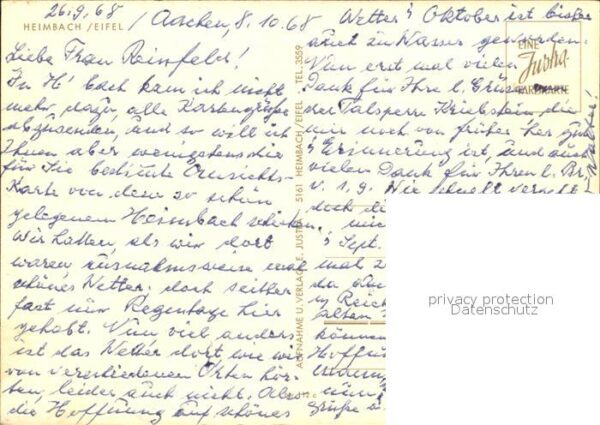 26.9.68 / Aachen, 8.10.68
HEIMBACH /EIFEL
Liebe Frau Reinfeld!
In H' bach kam ich nicht
mehr dazu, alle Kartengrüße
abzusenden, und so will ich
Ihnen aber wenigstens die
für Sie bestimmte Ansichts-
Karte von dem so schön
gelegenem Heimbach schicken.
Wir hatten, als wir dort
waren ausnahmsweise mal
schönes Wetter. doch seither
fast nur Regentage hier
gehabt. Nun viel anders
ist das Wetter dort, wie wir
von verschiedenen Orten hör-
ten, leider auch nicht. Also
die Hoffnung auf schönes
AUFNAHME U. VERLAG E. JUSTEN 5161 HEIMBACH/EIFEL TEL. 3559
Wetter's Oktober ist bisher
auch zu Wasser geworden.
Nun erst mal vielen
Dank für Ihre l. Grüße
der Talsperre Kriebstein, die
mir noch von früher her gut
's Erinnerung ist, und auch
vielen Dank für Ihren l. Br.
v. 1.9. Wie schnell
doch di
's Sept.
mal
da
Reich
alten
können
Hoffnu
nun
Grüße
EINE
Jusha
FARBKARTE
privacy protection
Datenschutz